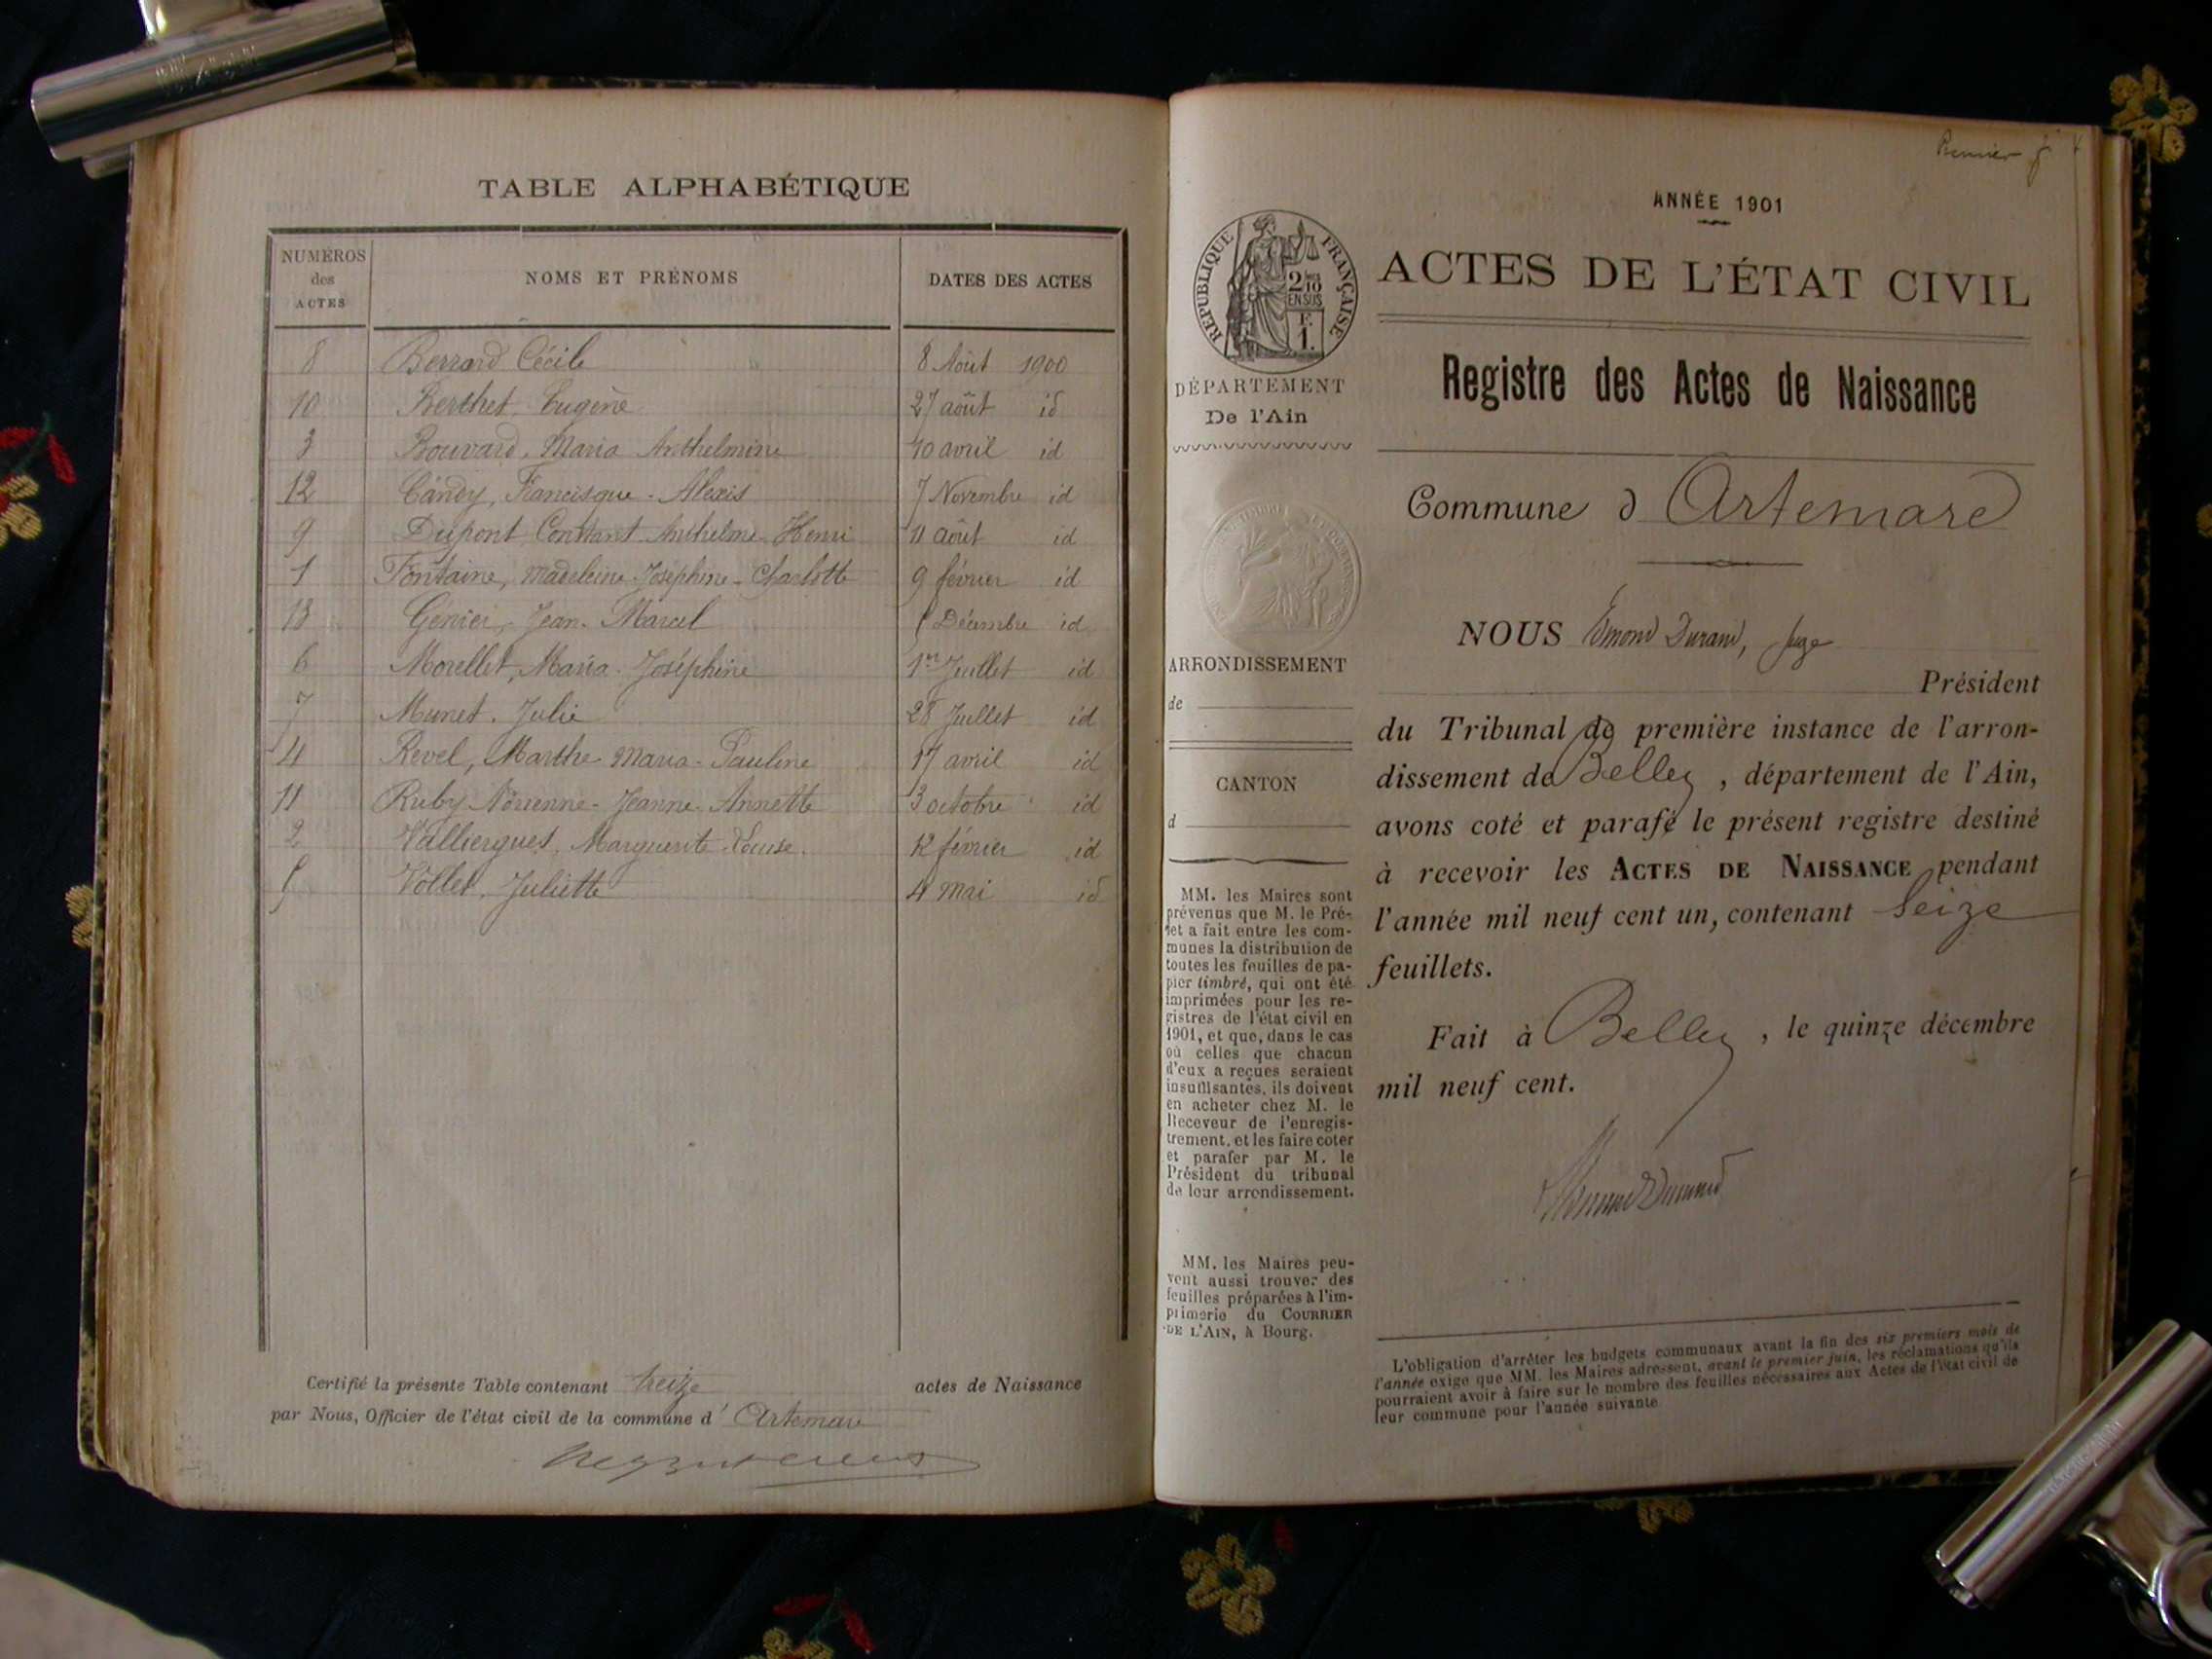 TABLE ALPHABÉTIQUE
NUMÉROS des ACTES NOMS ET PRÉNOMS DATES DES ACTES
8 Berrard Cécile 8 Août 1900
10 Berthet, Eugène 27 août id
3 Bouvard, Maria Anthelmine 10 avril id
12 Candy, Francisque-Alexis 7 Novembre id
9 Dupont Constant Anthelme Henri 11 août id
1 Fontaine, Madeleine-Joséphine-Charlotte 9 février id
13 Jean-Marcel Décembre id
6 Morellet, Maria-Joséphine 1er Juillet id
7 Munet, Julie 28 Juillet id
4 Revel, Marthe-Maria-Pauline 17 avril id
11 Ruby Jeanne-Annette 3 octobre id
2 Marguerite-Louise 12 février id
5 Vollet, Juliette 4 mai id
Certifié la présente Table contenant treize actes de Naissance
par Nous, Officier de l'état civil de la commune d' Artemare
Premier
ANNÉE 1901
RÉPUBLIQUE FRANÇAISE
2/10
EN SUS
F.
1.
ACTES DE L'ÉTAT CIVIL
DÉPARTEMENT
De l'Ain
Registre des Actes de Naissance
Commune d Artemare
NOUS Edmond Durand, Juge
Président
du Tribunal de première instance de l'arron-
dissement de Belley, département de l'Ain,
avons coté et parafé le présent registre destiné
à recevoir les ACTES DE NAISSANCE pendant
l'année mil neuf cent un, contenant seize
feuillets.
Fait à Belley, le quinze décembre
mil neuf cent.
ARRONDISSEMENT
de
CANTON
d
MM. les Maires sont
prévenus que M. le Pré-
fet a fait entre les com-
munes la distribution de
toutes les feuilles de pa-
pier timbré, qui ont été
imprimées pour les re-
gistres de l'état civil en
1901, et que, dans le cas
où celles que chacun
d'eux a reçues seraient
insuffisantes, ils doivent
en acheter chez M. le
Receveur de l'enregis-
trement, et les faire coter
et parafer par M. le
Président du tribunal
de leur arrondissement.
MM. les Maires peu-
vent aussi trouver des
feuilles préparées à l'im-
primerie du COURRIER
DE L'AIN, à Bourg.
L'obligation d'arrêter les budgets communaux avant la fin des six premiers mois de
l'année exige que MM. les Maires adressent, avant le premier juin, les réclamations qu'ils
pourraient avoir à faire sur le nombre des feuilles nécessaires aux Actes de l'état civil de
leur commune pour l'année suivante